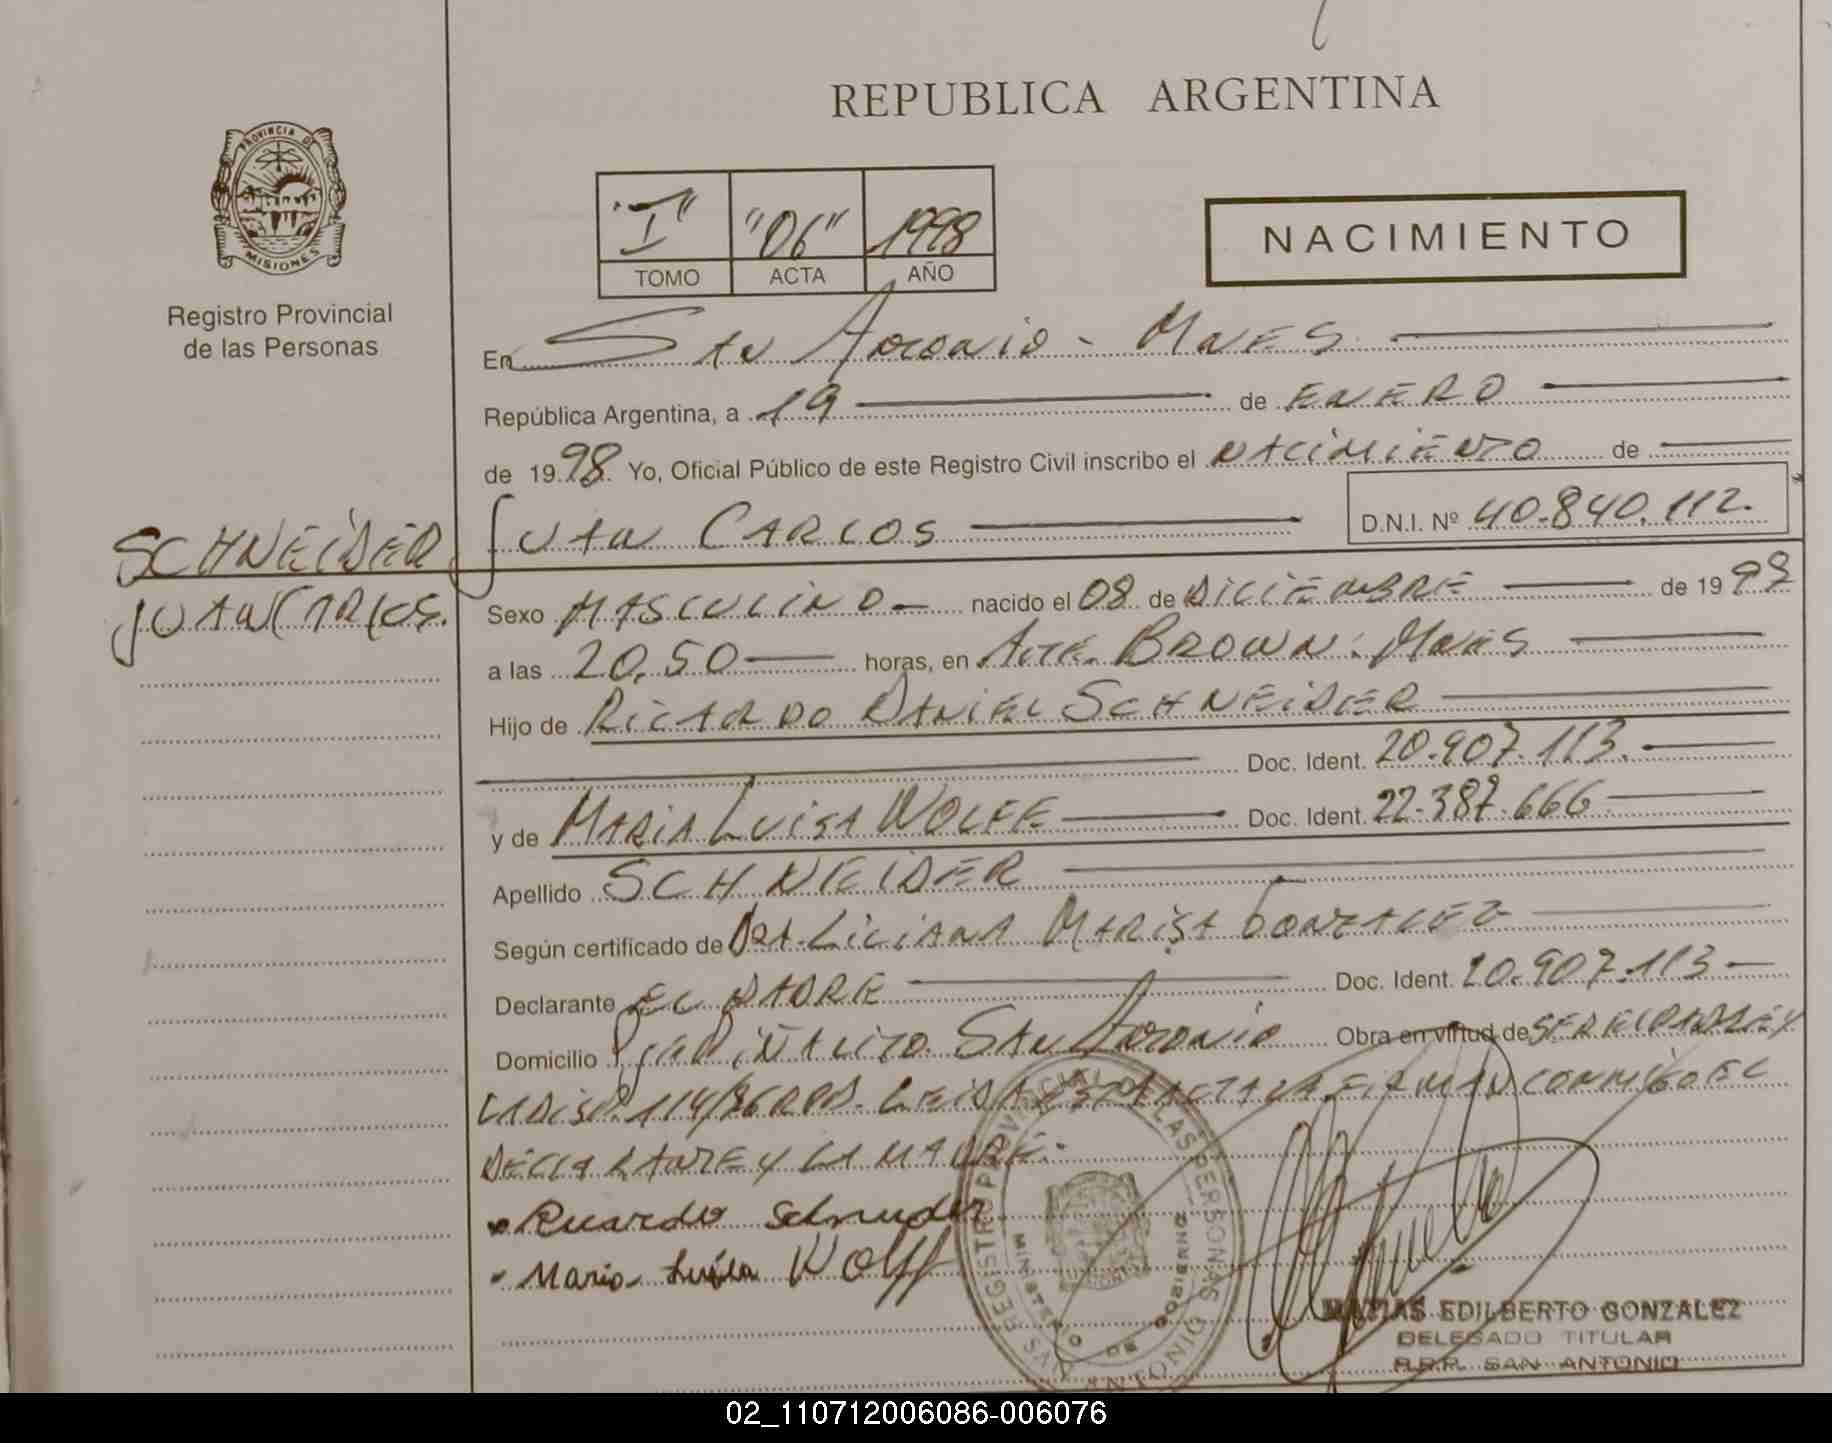 REPUBLICA ARGENTINA
PROVINCIA DE
MISIONES
Registro Provincial
de las Personas
"I" "06" 1998
TOMO ACTA AÑO
NACIMIENTO
En SAN ANTONIO - MNES
República Argentina, a 19 de ENERO
de 1998 Yo, Oficial Público de este Registro Civil inscribo el NACIMIENTO de
JUAN CARLOS D.N.I. Nº 40.840.112.
SCHNEIDER
JUAN CARLOS.
Sexo MASCULINO nacido el 08 de DICIEMBRE de 19
a las 20,50 horas, en ALTE. BROWN. MNES
Hijo de RICARDO DANIEL SCHNEIDER
Doc. Ident. 20.907.113.
y de MARIA LUISA WOLFF Doc. Ident. 22.387.666
Apellido SCHNEIDER
Según certificado de DRA. LILIANA MARISA GONZALEZ
Declarante EL PADRE Doc. Ident. 20.907.113
Domicilio PIÑALITO. SAN ANTONIO Obra en virtud de SER EL PADRE Y
LA DISP. 114/86 RPP. LEIDA ESTA ACTA LA FIRMAN CONMIGO EL
DECLARANTE Y LA MADRE.
Ricardo Schneider
Maria Luisa Wolff
REGISTRO PROVINCIAL DE LAS PERSONAS
MINISTERIO DE GOBIERNO
SAN ANTONIO
MATIAS EDILBERTO GONZALEZ
DELEGADO TITULAR
R.P.P. SAN ANTONIO
02_110712006086-006076